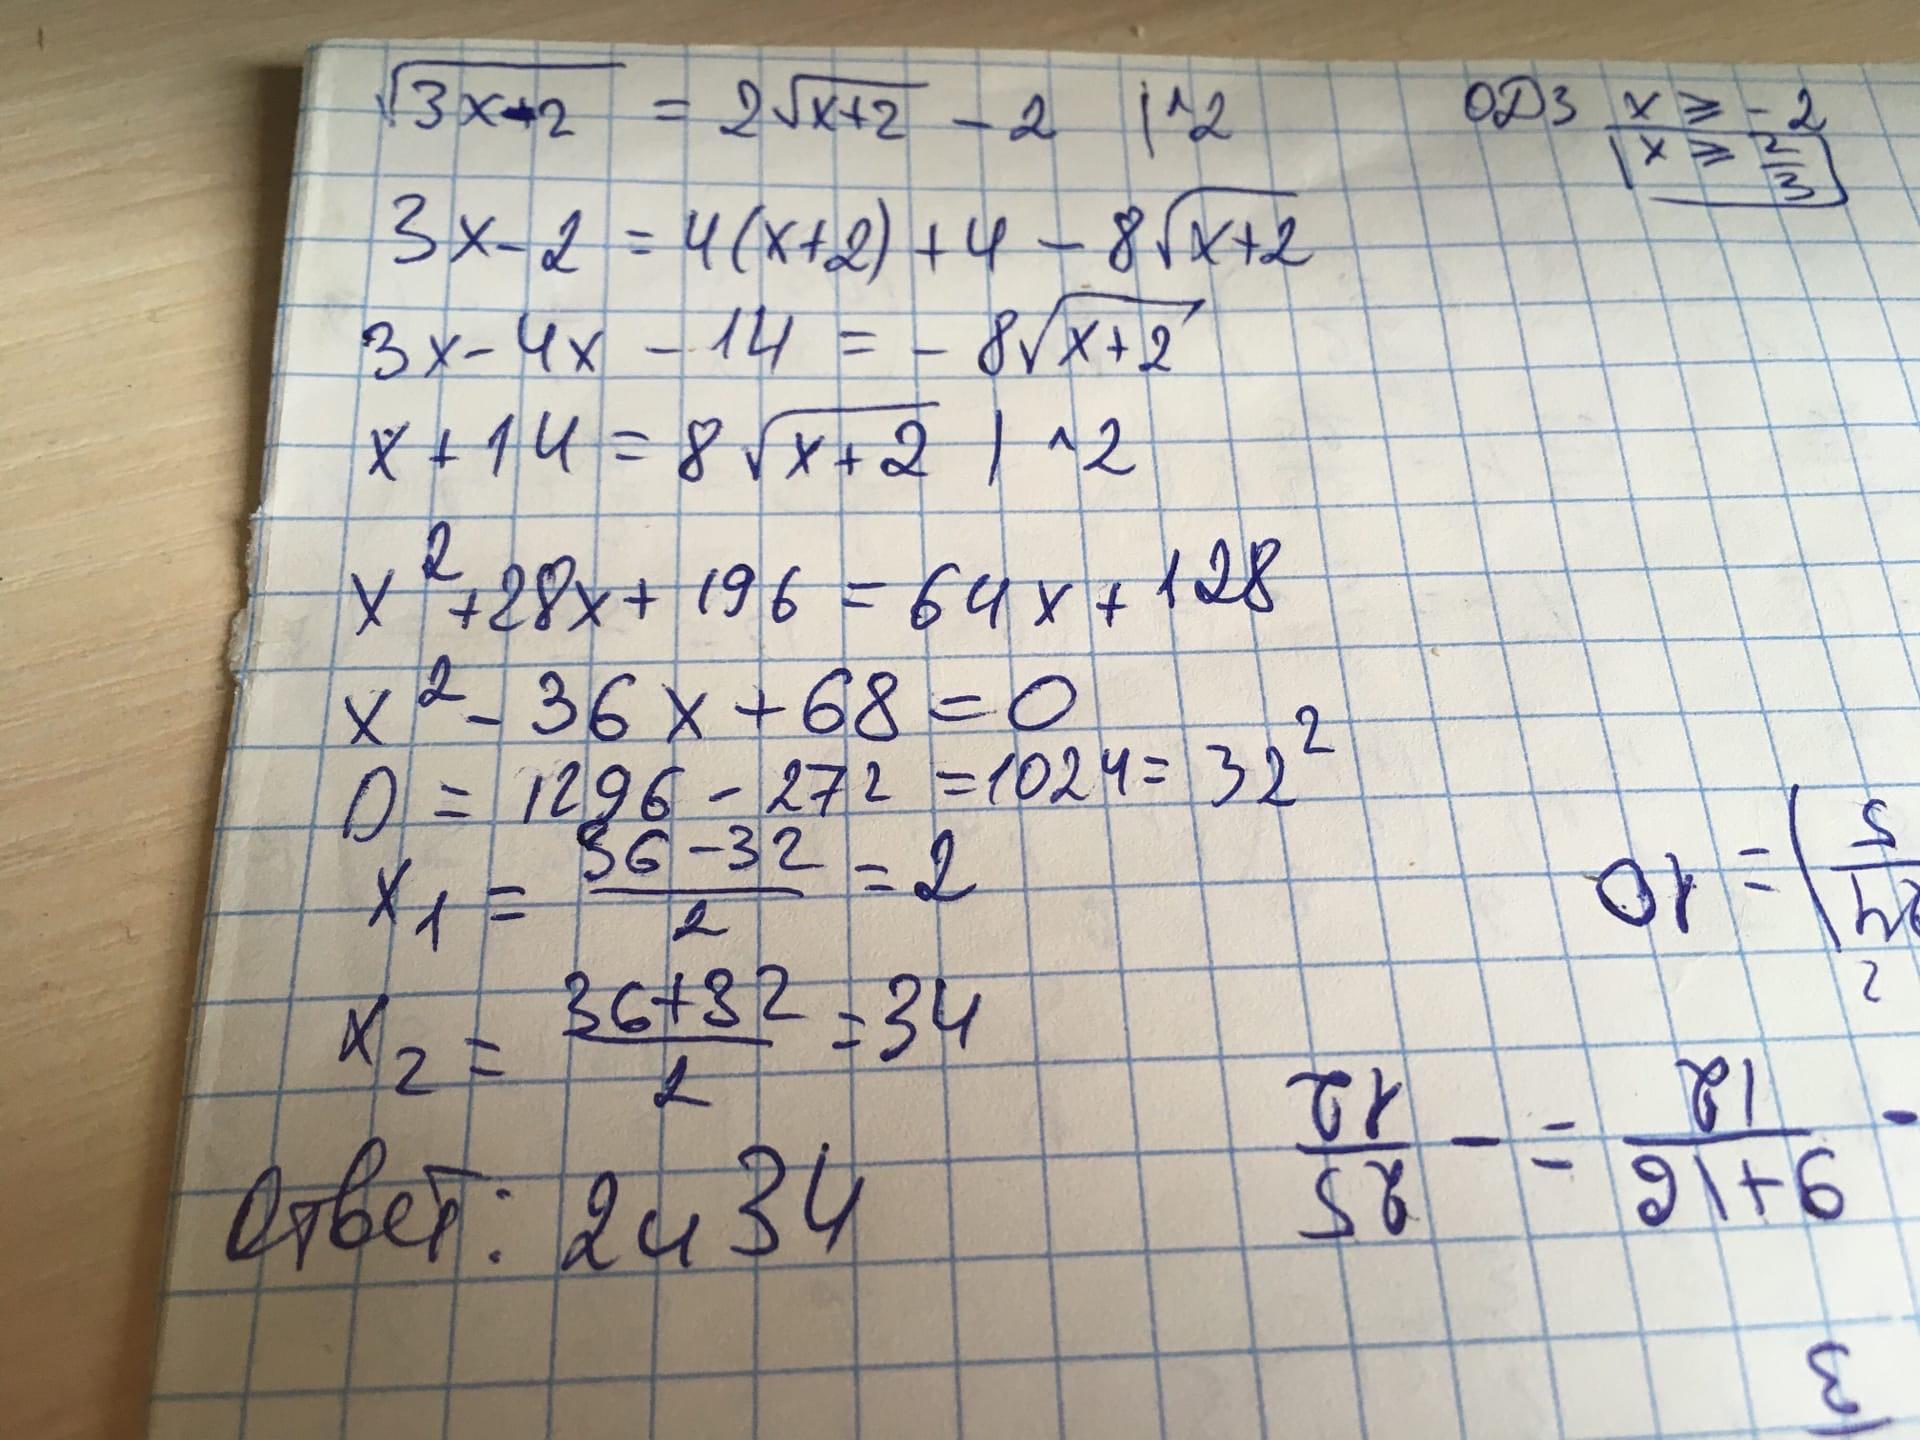 √3x-2 = 2√x+2 - 2 | ^2
ОДЗ x ≥ -2
x ≥ 2/3
3x - 2 = 4(x+2) + 4 - 8√x+2
3x - 4x - 14 = - 8√x+2
x + 14 = 8√x+2 | ^2
x² + 28x + 196 = 64x + 128
x² - 36x + 68 = 0
D = 1296 - 272 = 1024 = 32²
x₁ = 36-32/2 = 2
x₂ = 36+32/2 = 34
Ответ: 2 и 34
) = 10
9+16/12 = - 25/12
3